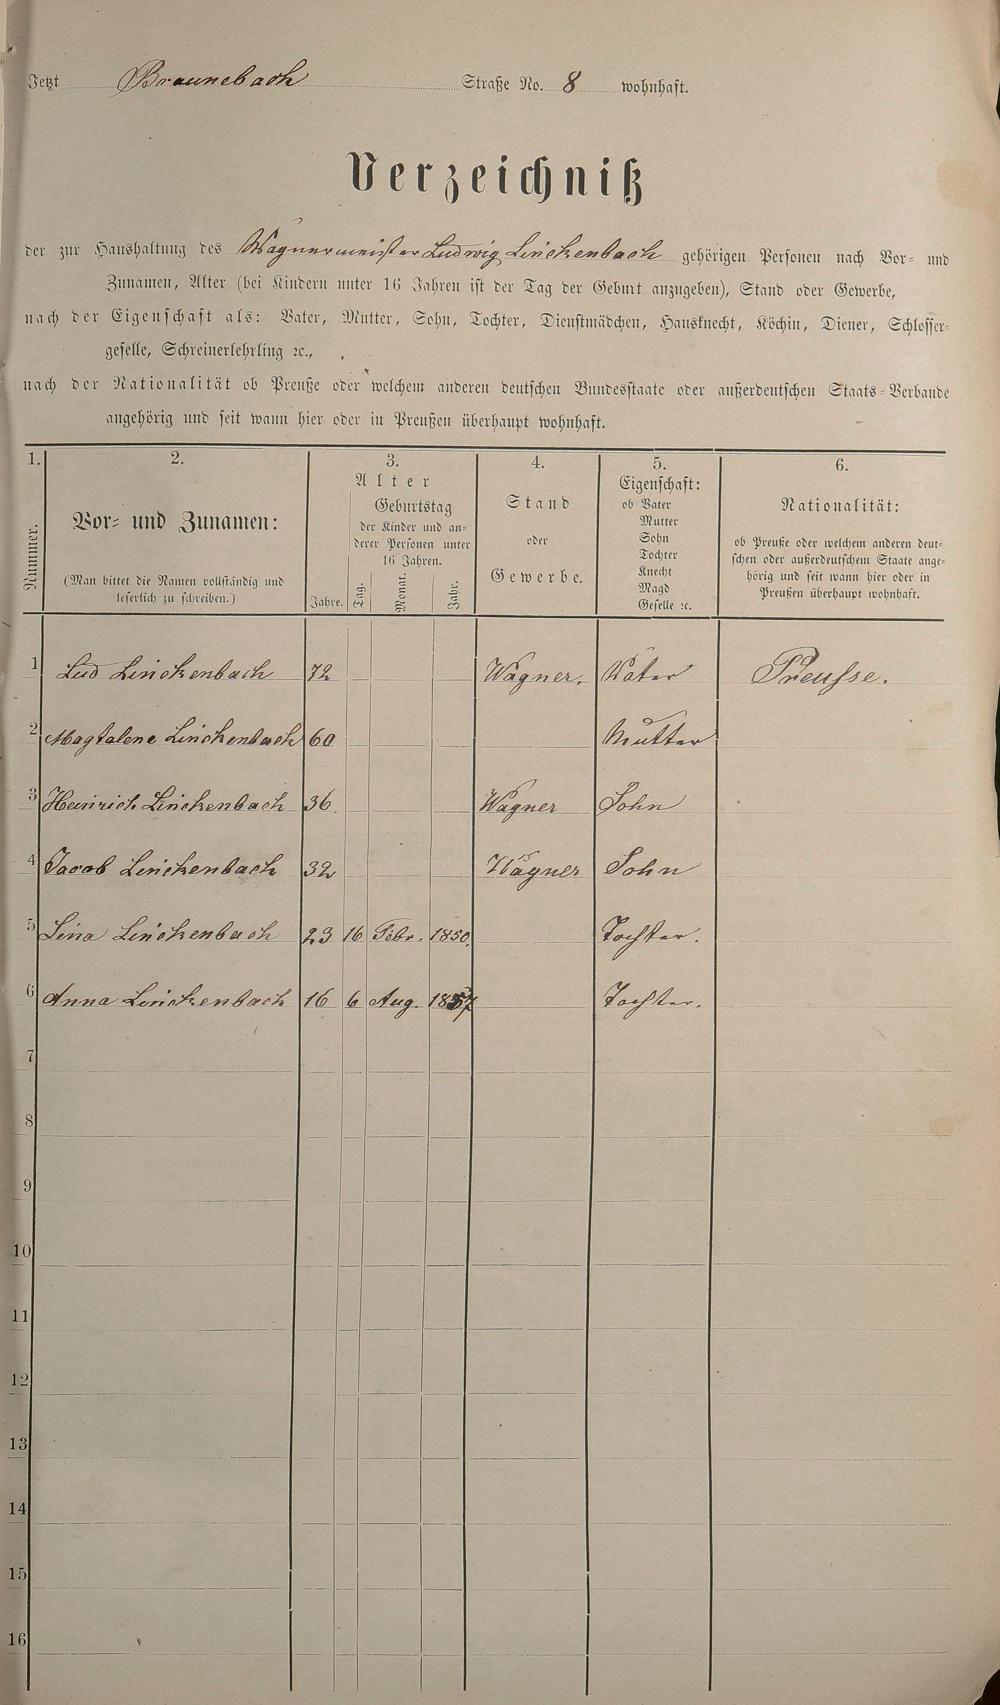 Jetzt Braunebach Straße No. 8 wohnhaft.
Verzeichniß
der zur Haushaltung des Wagnermeister Ludwig Linckenbach gehörigen Personen nach Vor- und
Zunamen, Alter (bei Kindern unter 16 Jahren ist der Tag der Geburt anzugeben), Stand oder Gewerbe,
nach der Eigenschaft als: Vater, Mutter, Sohn, Tochter, Dienstmädchen, Hausknecht, Köchin, Diener, Schlosser-
geselle, Schreinerlehrling ꝛc.,
nach der Nationalität ob Preuße oder welchem anderen deutschen Bundesstaate oder außerdeutschen Staats-Verbande
angehörig und seit wann hier oder in Preußen überhaupt wohnhaft.
1. 2. 3. 4. 5. 6.
Nummer.
Vor- und Zunamen:
(Man bittet die Namen vollständig und
leserlich zu schreiben.)
Alter
Jahre.
Geburtstag
der Kinder und an-
derer Personen unter
16 Jahren.
Tag. Monat. Jahr.
Stand
oder
Gewerbe.
Eigenschaft:
ob Vater
Mutter
Sohn
Tochter
Knecht
Magd
Geselle ꝛc.
Nationalität:
ob Preuße oder welchem anderen deut-
schen oder außerdeutschem Staate ange-
hörig und seit wann hier oder in
Preußen überhaupt wohnhaft.
1 Lud Linckenbach 72 Wagner. Vater Preusse.
2 Magtalene Linckenbach 60 Mutter
3 Heinrich Linckenbach 36 Wagner Sohn
4 Jacob Linckenbach 32 Wagner Sohn
5 Lina Linckenbach 23 16 Febr. 1850. Tochter.
6 Anna Linckenbach 16 6 Aug. 1857 Tochter.
7
8
9
10
11
12
13
14
15
16